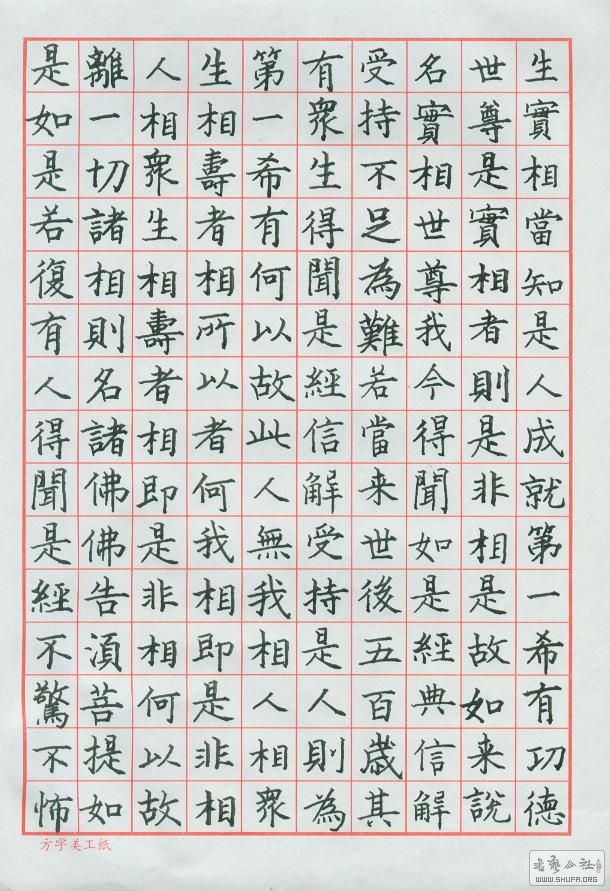 生實相當知是人成就第一希有功德
世尊是實相者則是非相是故如来說
名實相世尊我今得聞如是經典信解
受持不足為難若當来世後五百歲其
有眾生得聞是經信解受持是人則為
第一希有何以故此人無我相人相眾
生相壽者相所以者何我相即是非相
人相眾生相壽者相即是非相何以故
離一切諸相則名諸佛佛告須菩提如
是如是若復有人得聞是經不驚不怖
方字美工纸
書藝公社
WWW.SHUFA.ORG